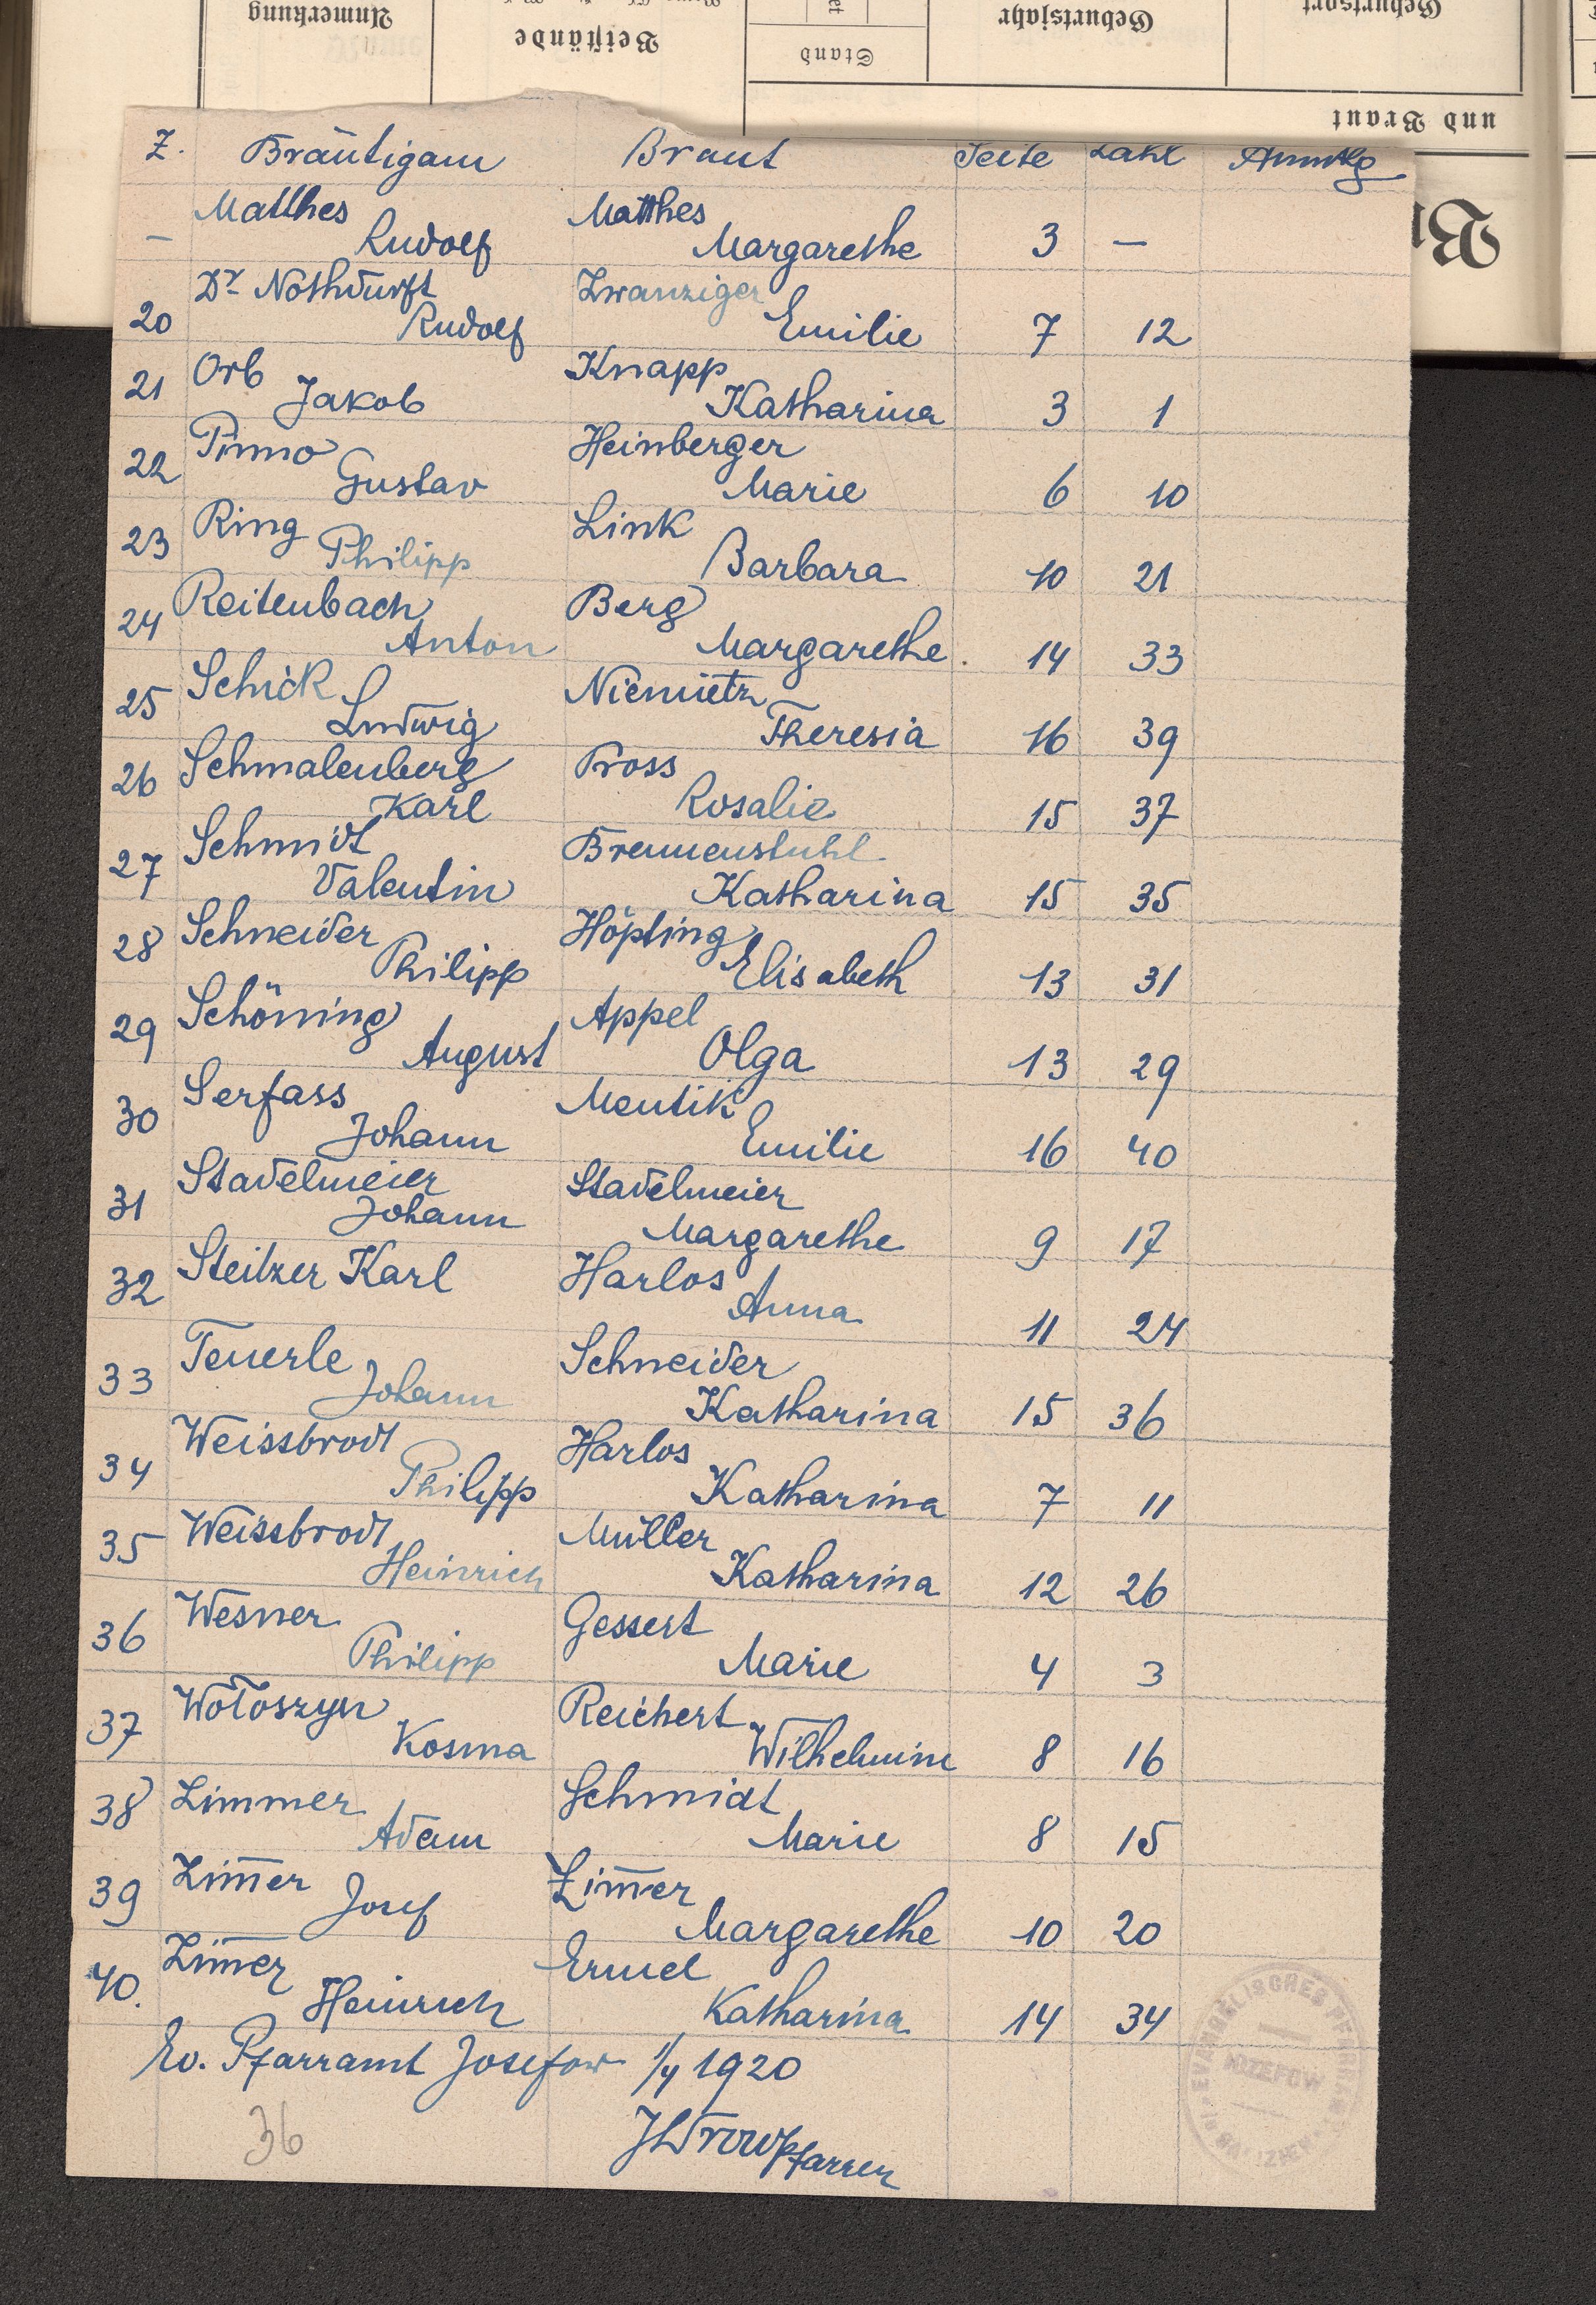 Anmerkung Beistände Stand Geburtsjahr Geburtsort
und Braut
Z. Bräutigam Braut Seite Zahl Anmkg
Matthes Matthes
— Rudolf Margarethe 3 —
Dr Nothdurft Zwanziger
20 Rudolf Emilie 7 12
Orb Knapp
21 Jakob Katharina 3 1
Pinno Heinberger
22 Gustav Marie 6 10
Ring Link
23 Philipp Barbara 10 21
Reitenbach Berg
24 Anton Margarethe. 14 33
Schick Niemietz
25 Ludwig Theresia 16 39
Schmalenberg Pross
26 Karl Rosalie 15 37
Schmidt Brennenstuhl
27 Valentin Katharina 15 35
Schneider Höpfing
28 Philipp Elisabeth 13 31
Schöning Appel
29 August Olga 13 29
Serfass Mentik
30 Johann Emilie 16 40
Stadelmeier Stadelmeier
31 Johann Margarethe 9 17
32 Steitzer Karl Harlos
Anna 11 24
Teuerle Schneider
33 Johann Katharina 15 36
Weissbrodt Harlos
34 Philipp Katharina 7 11
Weissbrodt Müller
35 Heinrich Katharina 12 26
Wesner Gessert
36 Philipp Marie 4 3
Wołoszyn Reichert
37 Kosma Wilhelmine 8 16
Zimmer Schmidt
38 Adam Marie 8 15
Zim̅er Zim̅er
39 Josef Margarethe 10 20
Zim̅er Ermel
40. Heinrich Katharina 14 34
Ev. Pfarramt Josefow 1/4 1920
36
Pfarrer
EVANGELISCHES PFARRAMT
JÓZEFÓW